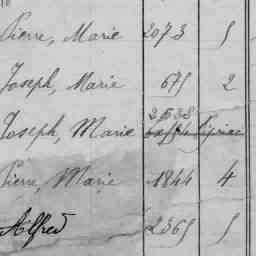 Pierre, Marie 2073 5
Joseph, Marie 675 2
2638
Joseph, Marie
Pierre, Marie 1844 4
Alfred 2365 5